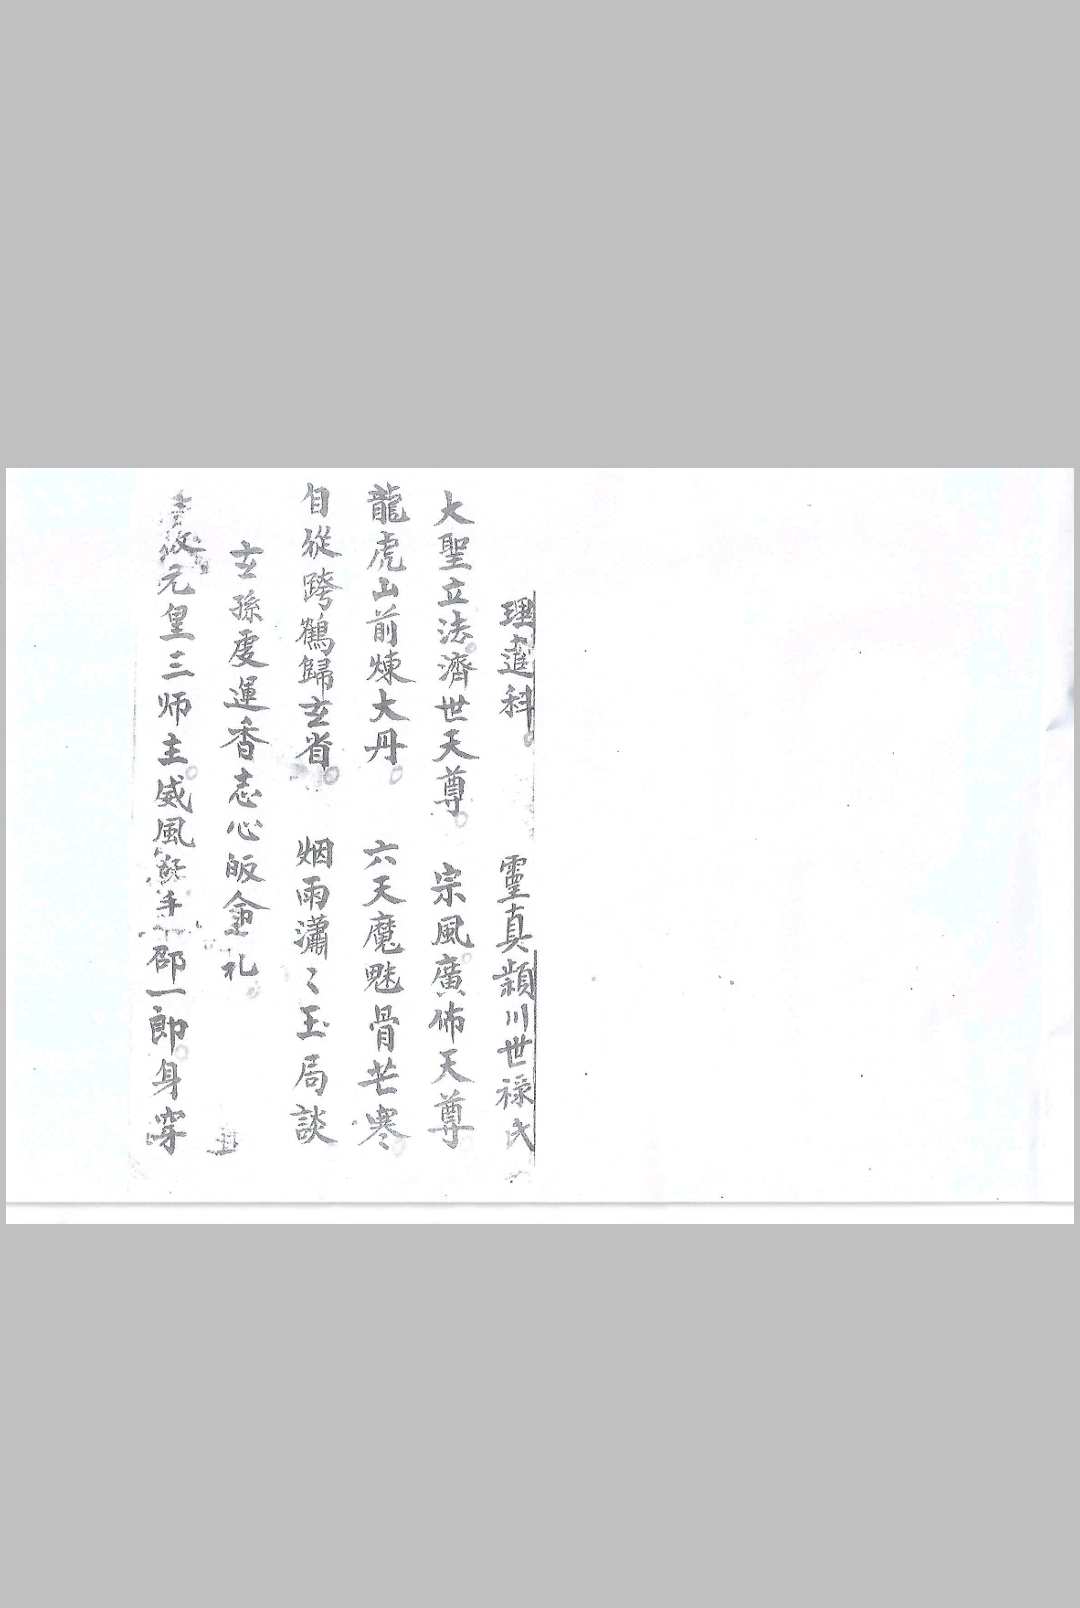 理進科 靈真頴川世祿氏
大聖立法濟世天尊 宗風廣佈天尊
龍虎山前煉大丹 六天魔魅骨芒寒
自從跨鶴歸玄省 烟雨瀟〻玉局談
玄孫虔運香志心皈命礼
元皇三师主威風 邵一郎身穿